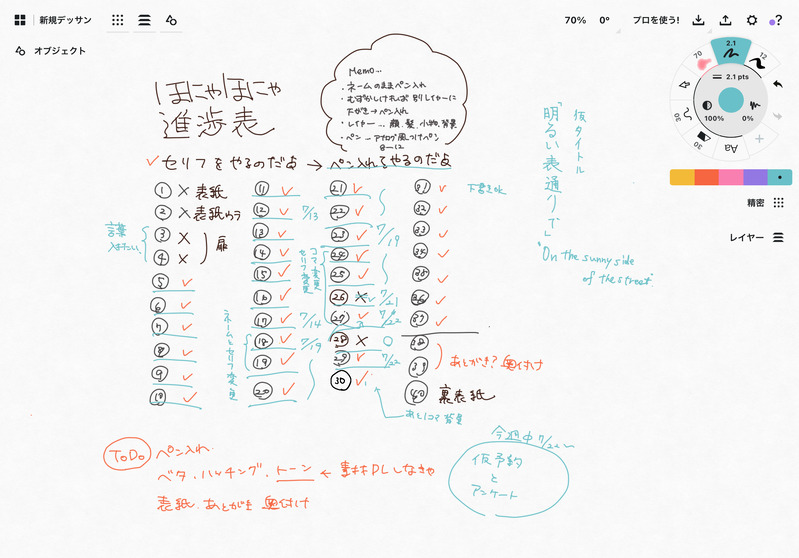 新規デッサン
70%
0°
プロを使う!
?
オブジェクト
ほにゃほにゃ
進捗表
Memo...
・ネームのままペン入れ
・むずかしければ別レイヤーに
下がき→ペン入れ
・レイヤー…顔、髪、小物、背景
・ペン…アナログ風つけペン
8-12
仮タイトル
「明るい表通りで」
"On the sunny side
of the street"
70
2.1
12
2.1 pts
100%
0%
30
30
Aa
精密
レイヤー
✓セリフをやるのだよ→ペン入れもやるのだよ
① × 表紙
② × 表紙ウラ
③ ×
④ ×
扉
言葉
入れたい
⑤ ✓
⑥ ✓
⑦ ✓
⑧ ✓
⑨ ✓
⑩ ✓
⑪ ✓
⑫ ✓ 7/13
⑬ ✓
⑭ ✓
⑮ ✓
⑯ ✓
⑰ ✓ 7/14
⑱ ✓ 7/19
⑲ ✓
⑳ ✓
ネームとセリフ変更
コマ変更
セリフ変更
21 ✓
22 ✓
23 ✓ 7/19
24 ✓
25 ✓
26 × ✓ 7/21
27 ✓ 7/22
28 × ○
29 ✓ 7/22
30 ✓
あと1コマ 背景
31 ✓
32 ✓
33 ✓
34 ✓
35 ✓
36 ✓
37 ✓
38
39
あとがき? 奥付け
40 裏表紙
下書きok
ToDo
ペン入れ
ベタ・ハッチング・トーン ← 素材DLしなきゃ
表紙、あとがき 奥付け
今週中 7/22~
仮予約
と
アンケート